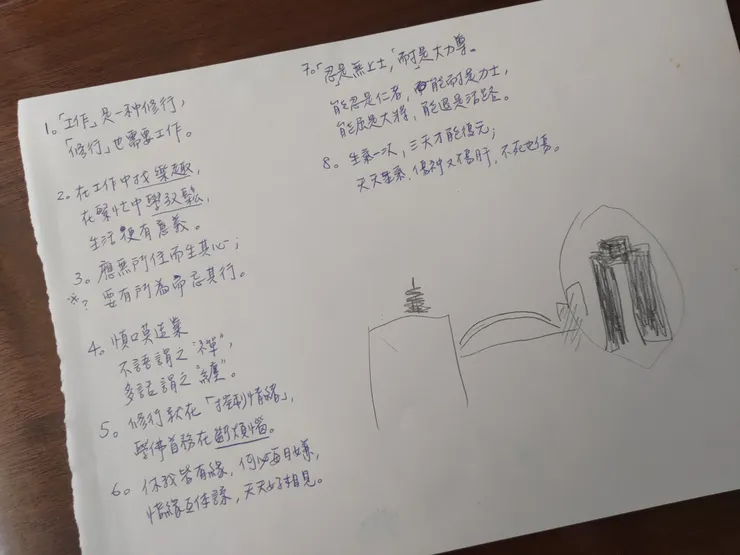 1。「工作」是一种修行，
「修行」也需要工作。
2。在工作中找樂趣，
在緊忙中學放鬆，
生活便有意義。
3。應無所住而生其心；
※? 要有所為而忘其行。
4。慎口莫造業
不語謂之"禪"，
多話謂之"纏"。
5。修行就在「控制情緒」，
學佛首務在斷煩惱。
6。你我皆有緣，何必每日嫌，
惜緣互体諒，天天好相見。
7。「忍是無上士，」而耐是大力尊。
能忍是仁者，能耐是力士，
能屈是大將，能退是活路。
8。生氣一次，三天才能復元；
天天生氣，傷神又傷肝，不死也傷。